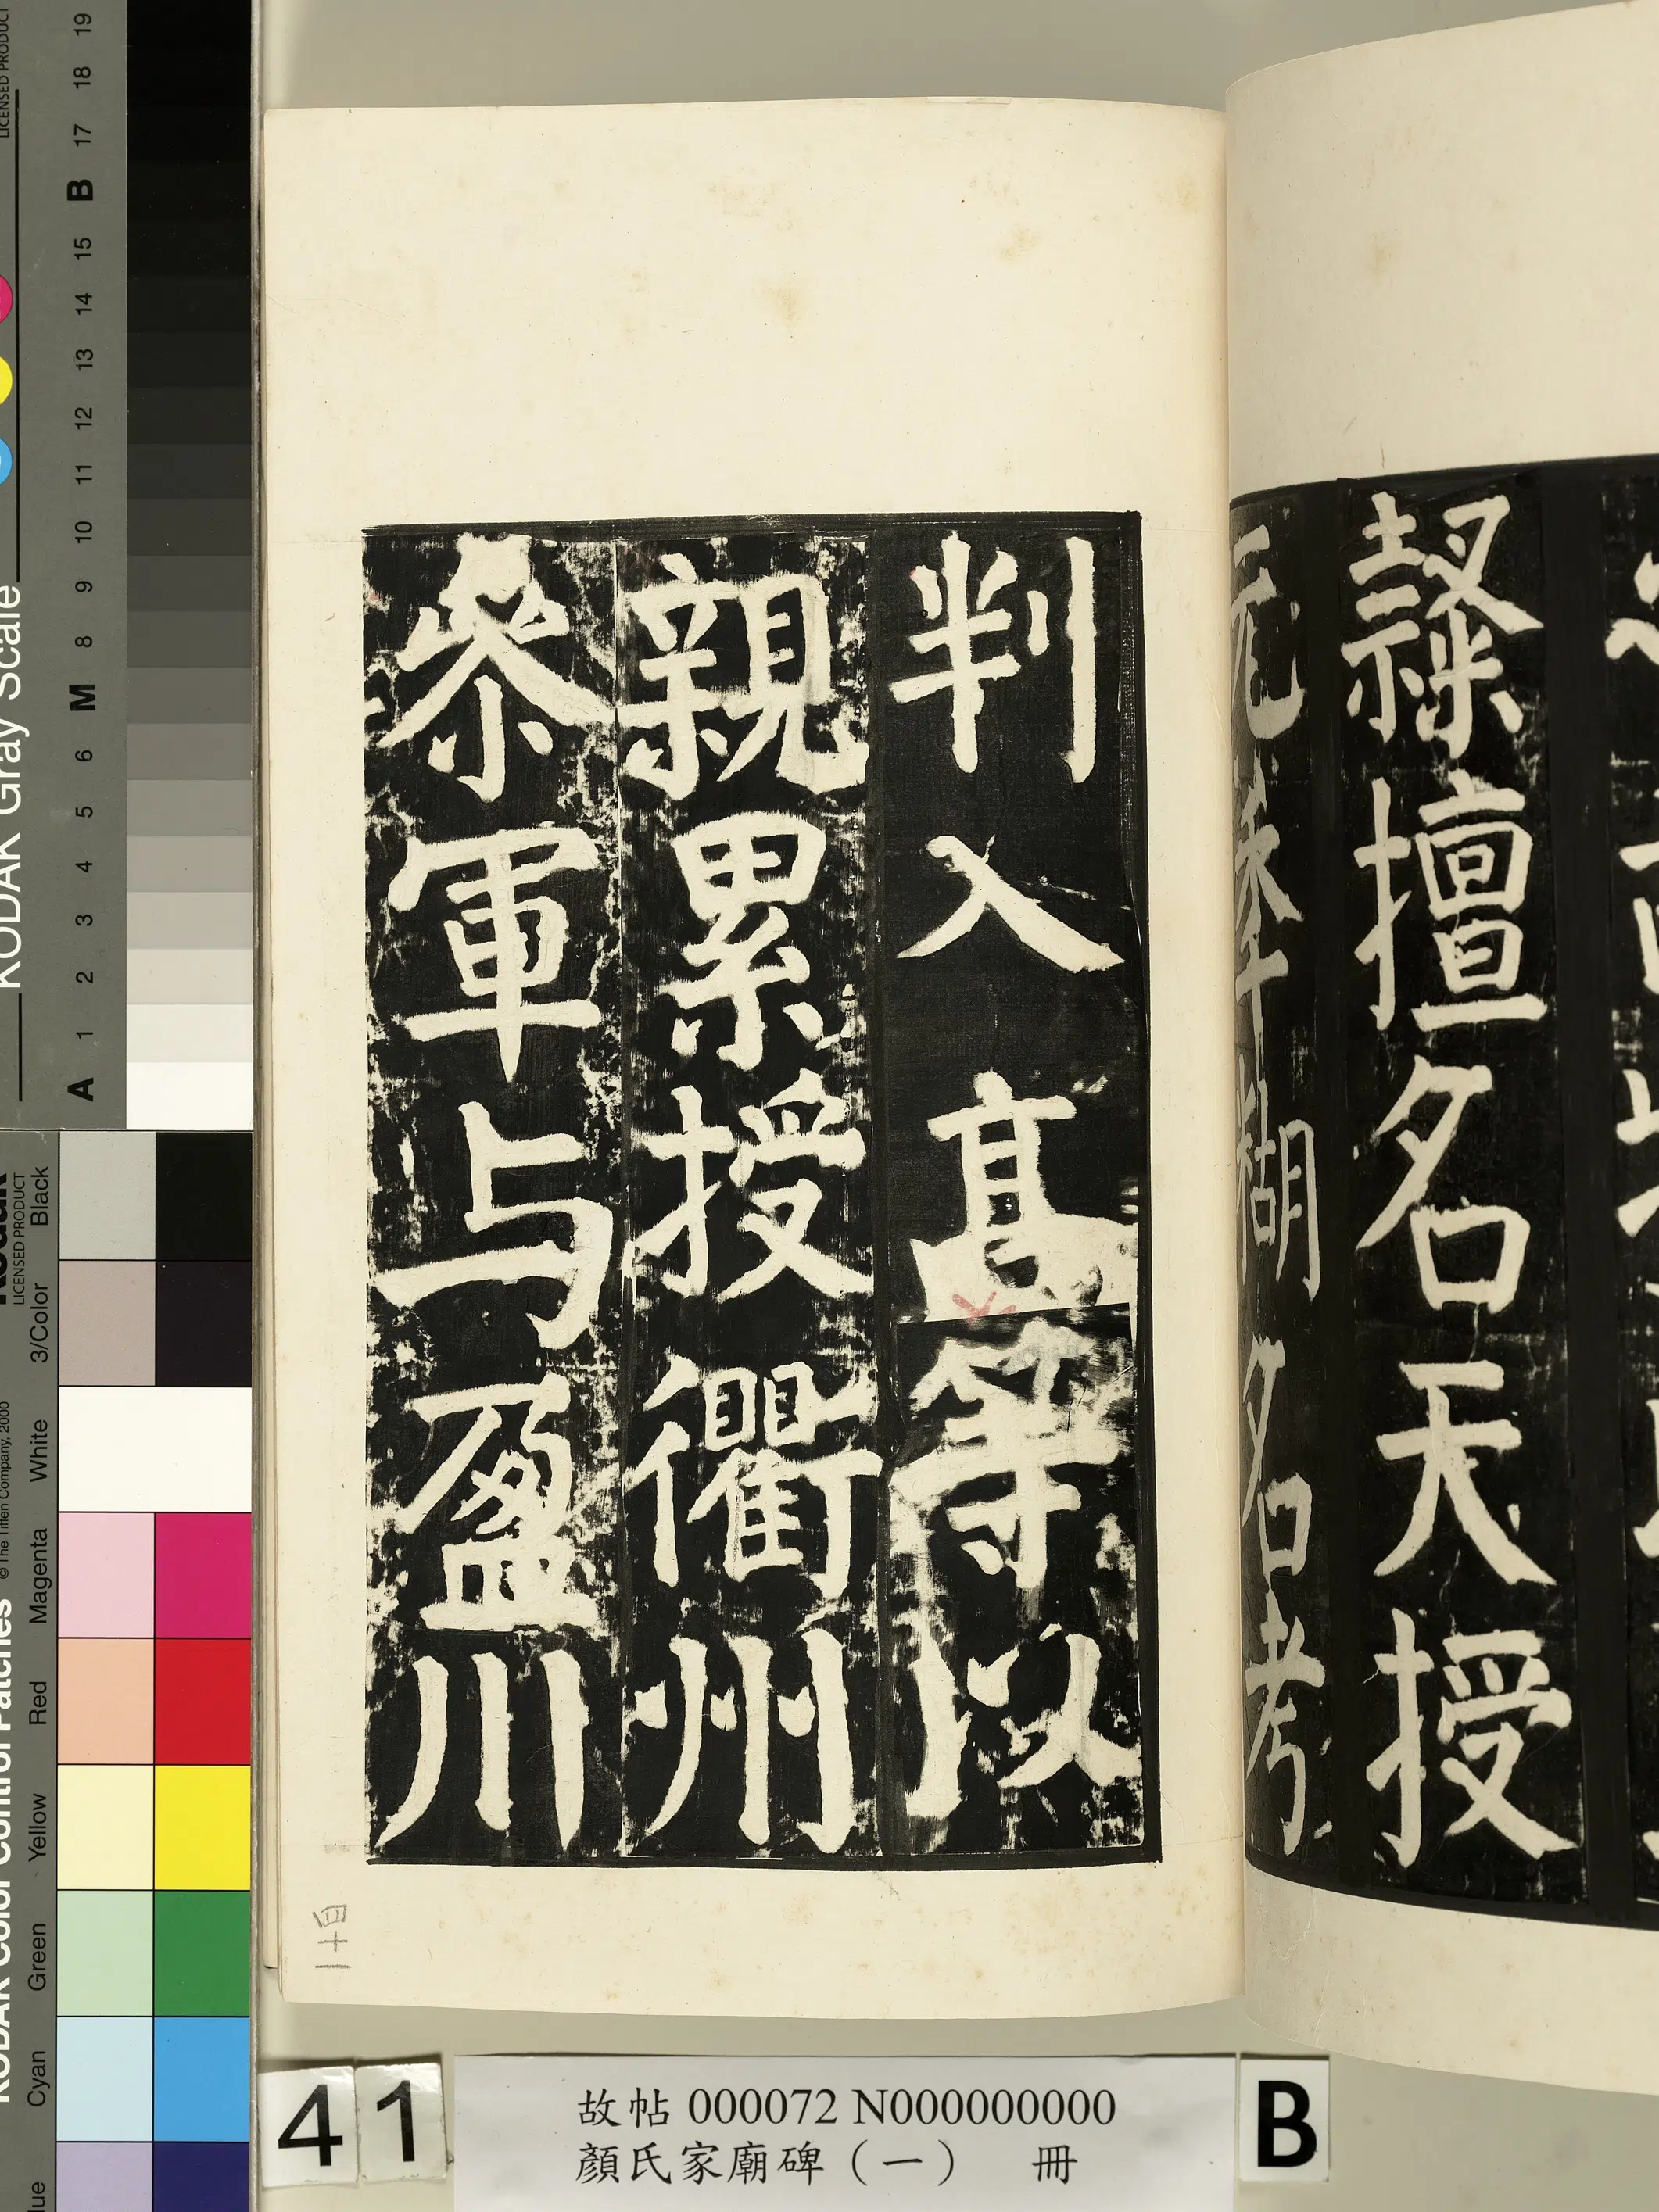 隸擅名天授
元季糊名考
判入高等以
親累授衢州
叅軍与盈川
二十四
41
故帖 000072 N000000000
顏氏家廟碑（一） 冊
B
KODAK Gray Scale
LICENSED PRODUCT
A 1 2 3 4 5 6 M 8 9 10 11 12 13 14 15 B 17 18 19
KODAK Color Control Patches
© The Tiffen Company, 2000
Kodak
LICENSED PRODUCT
Cyan Green Yellow Red Magenta White 3/Color Black